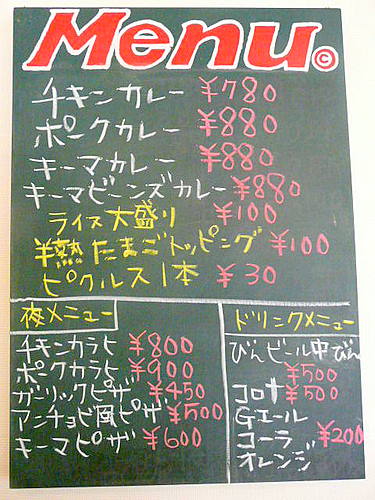 Menu ©
チキンカレー ¥780
ポークカレー ¥880
キーマカレー ¥880
キーマビーンズカレー ¥880
ライス大盛り ¥100
半熟たまごトッピング ¥100
ピクルス1本 ¥30
夜メニュー
チキンカラヒ ¥800
ポークカラヒ ¥900
ガーリックピザ ¥450
アンチョビ風ピザ ¥500
キーマピザ ¥600
ドリンクメニュー
びんビール中びん
¥500
コロナ ¥500
Gエール
コーラ ¥200
オレンジ